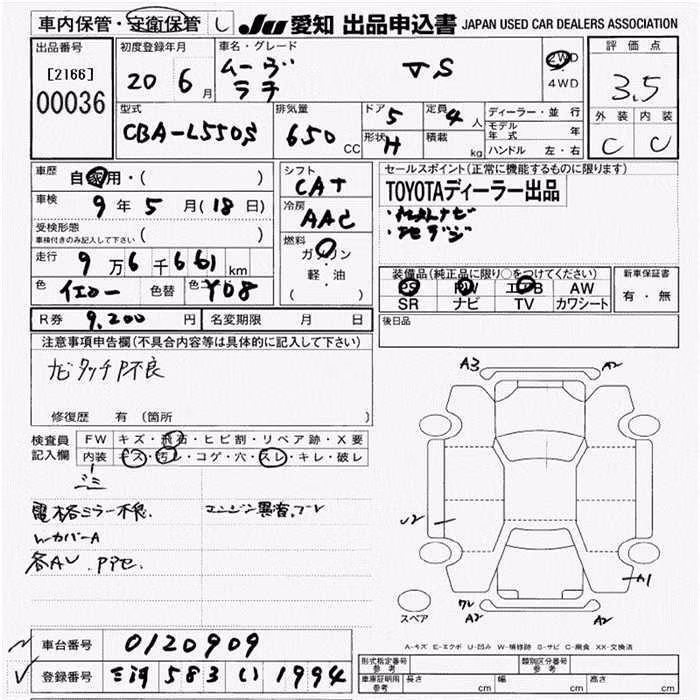 車内保管・守衛保管 し JU 愛知 出品申込書 JAPAN USED CAR DEALERS ASSOCIATION
出品番号
[2166]
00036
初度登録年月
20 6月
車名・グレード
ムーヴ
ラテ
2WD
・
4WD
評価点
3.5
外装 内装
C C
型式
CBA-L550S
排気量
650 CC
ドア 5
形状 H
定員 4人
積載 kg
ディーラー・並行
モデル年式 年
ハンドル 左・右
車歴
自家用・( )
車検
9年5月(18日)
受検形態
車検付きのみ記入して下さい ( )
走行
9万6千661km
色 イエロー 色替 色コード Y08
シフト
CAT
冷房
AAC
燃料
ガソリン
・
軽・油
( )
セールスポイント(正常に機能するものに限ります)
TOYOTAディーラー出品
装備品(純正品に限り○をつけてください)
PS PW エアB AW
SR ナビ TV カワシート
新車保証書
有・無
R券 9,200円 名変期限 月 日
後日品
注意事項申告欄(不具合内容等は具体的に記入して下さい)
ナビタッチP不良
修復歴 有(箇所
検査員
記入欄
FW キズ・飛石・ヒビ割・リペア跡・X要
内装 キズ・汚レ・コゲ・穴・スレ・キレ・破レ
シミ
電格ミラー不良.
エンジン異音.
カバーA
A3
A2
U2
A1
A2
A2
スペア
A-キズ E-エクボ U-凹み W-補修跡 S-サビ C-腐食 XX-交換済
車台番号 0120909
登録番号 三河 583 い 1994
形式指定番号
参考
類別区分番号
参考
車庫証明用
参考
長さ cm 幅 cm 高さ cm